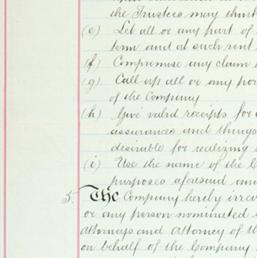 the Trustees may think
(e) Let all or any part of
term and at such rent
(f) Compromise any claim
(g) Call up all or any por
of the Company
(h) Give valid receipts for
assurances and things
desirable for realizing
(i) Use the name of the C
purposes aforesaid and
5. The Company hereby irrev
or any person nominated
Attorneys and Attorney of th
on behalf of the Company